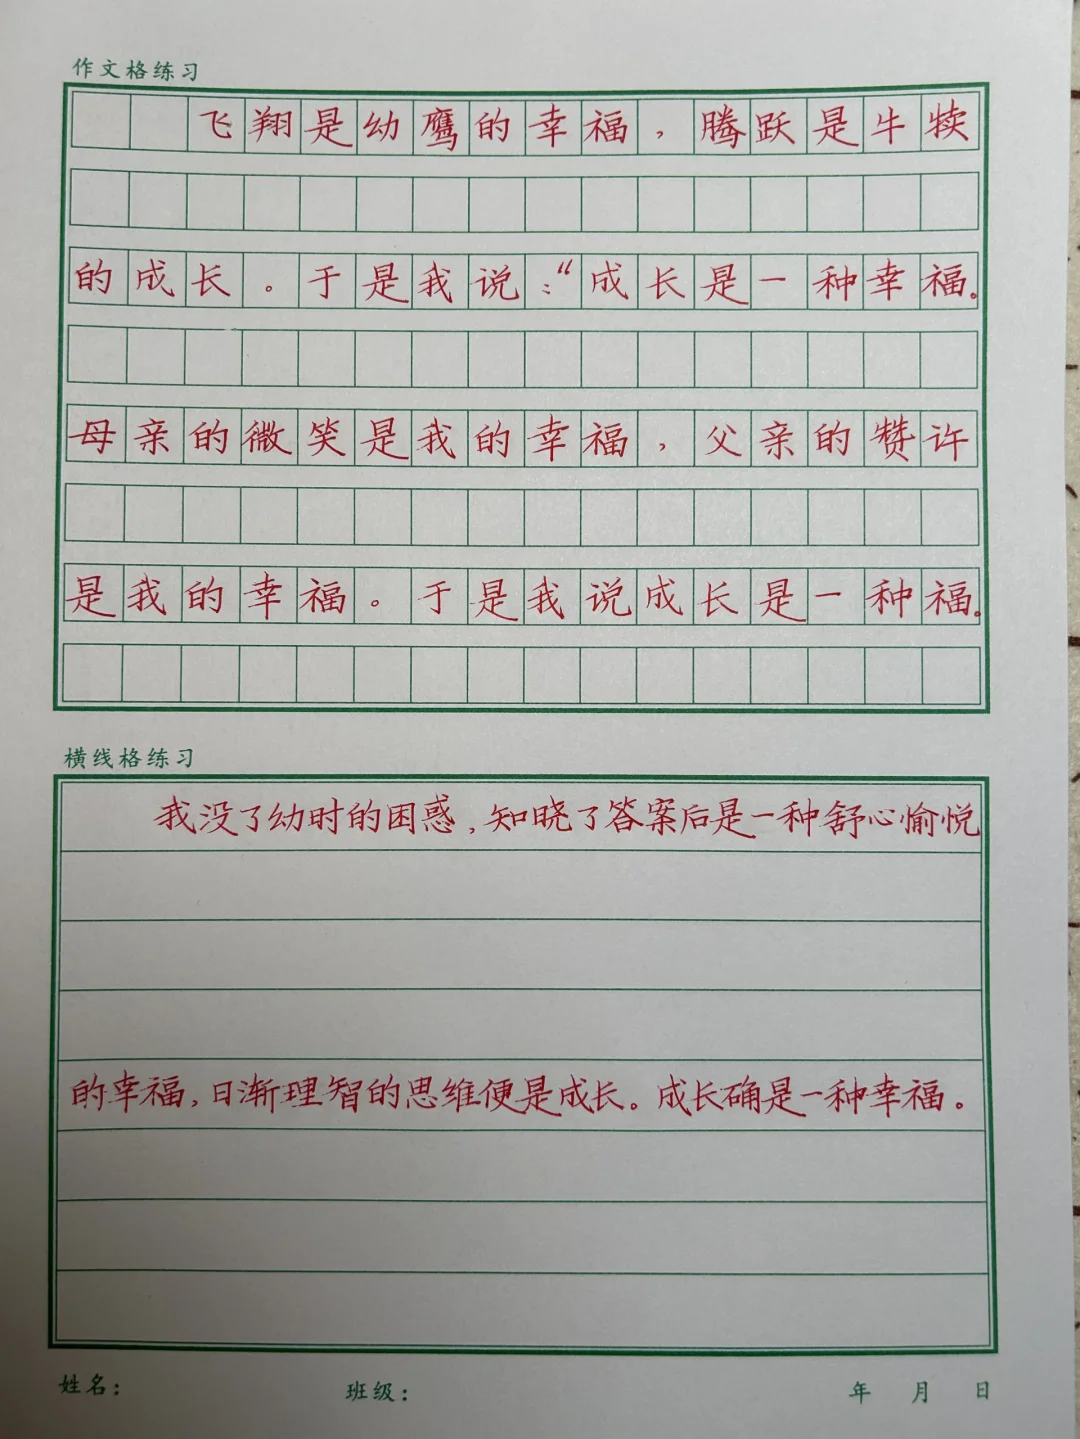 作文格练习
飞翔是幼鹰的幸福，腾跃是牛犊
的成长。于是我说：“成长是一种幸福。
母亲的微笑是我的幸福，父亲的赞许
是我的幸福。于是我说成长是一种福。
横线格练习
我没了幼时的困惑，知晓了答案后是一种舒心愉悦
的幸福，日渐理智的思维便是成长。成长确是一种幸福。
姓名： 班级： 年 月 日